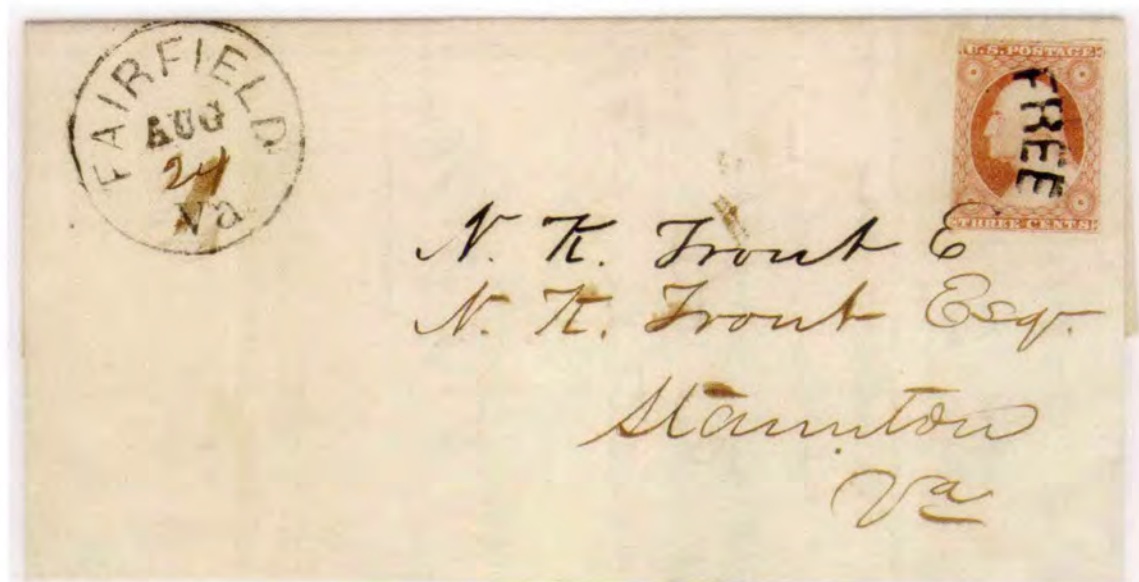 FAIRFIELD
AUG
24
Va
U.S. POSTAGE
FREE
THREE CENTS
N. K. Trout E
N. K. Trout Esqr.
Staunton
Va